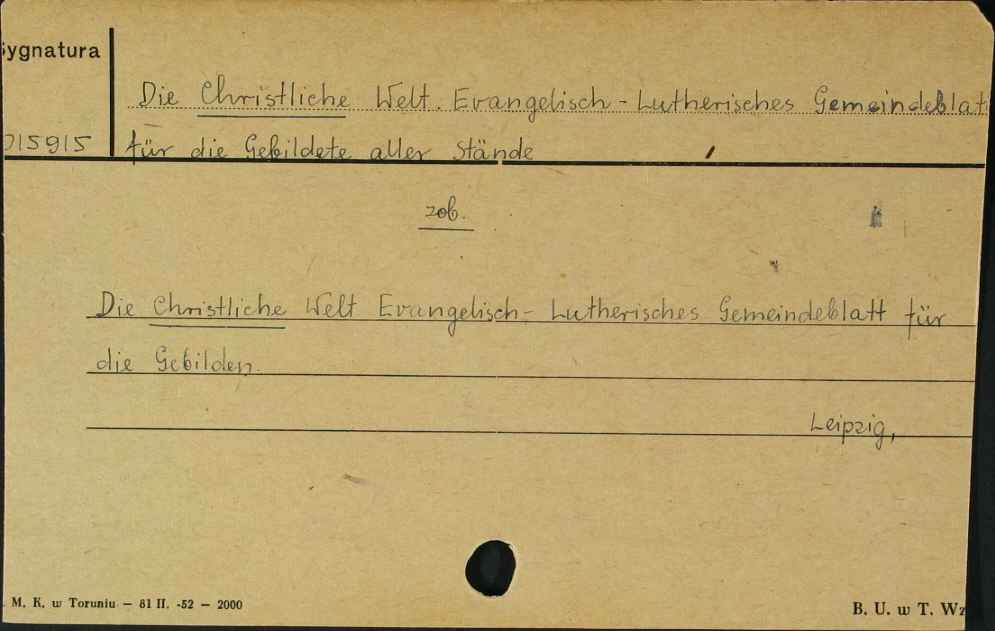 Sygnatura
Die Christliche Welt. Evangelisch-Lutherisches Gemeindeblat
015915 für die Gebildete aller Stände
zob.
Die Christliche Welt Evangelisch-Lutherisches Gemeindeblatt für
die Gebilden
Leipzig,
M. K. w Toruniu — 81 II. -52 — 2000
B. U. w T. Wz